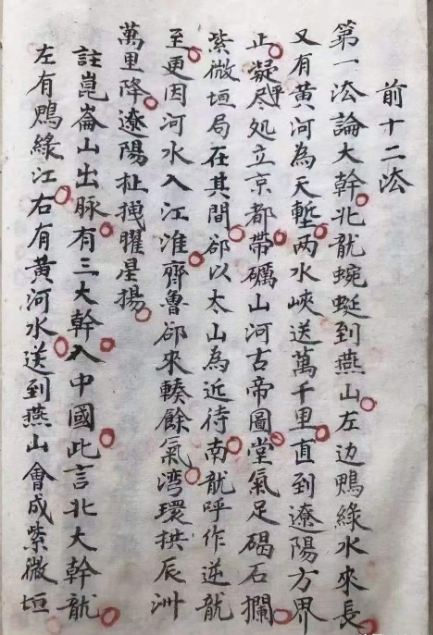 前十二法
第一法論大幹北龍蜿蜒到燕山左边鴨綠水來長
又有黃河為天塹两水峽送萬千里直到遼陽方界
止凝尽处立京都帶礪山河古帝圖堂氣足碣石攔
紫微垣局在其間郤以太山為近待南龍呼作逆龍
至更因河水入江淮齊魯郤來輳餘氣湾環拱辰洲
萬里降遼陽扯拽曜星揚
註崑崙山出脉有三大幹入中國此言北大幹龍
左有鴨綠江右有黃河水送到燕山會成紫微垣